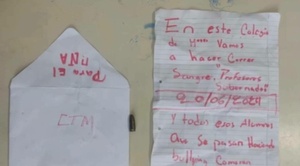 Para El
UNA
CTM
En este Colegio
de Vamos
a hacer Correr
Sangre. Profesores
Subornados
20/06/2024
Y todos esos Alumnos
Que Se pasan Haciendo
bullying